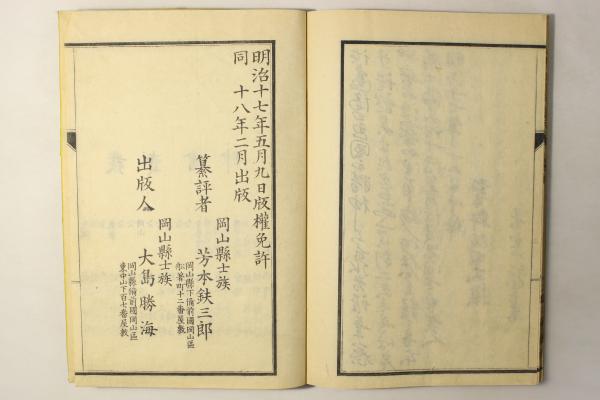 明治十七年五月九日版權免許
同 十八年二月出版
岡山縣士族
纂評者 芳本鉄三郎
岡山縣下備前國岡山區
町十二番屋敷
岡山縣士族
出版人 大島勝海
岡山縣備前國岡山區
東中山下百七番屋敷